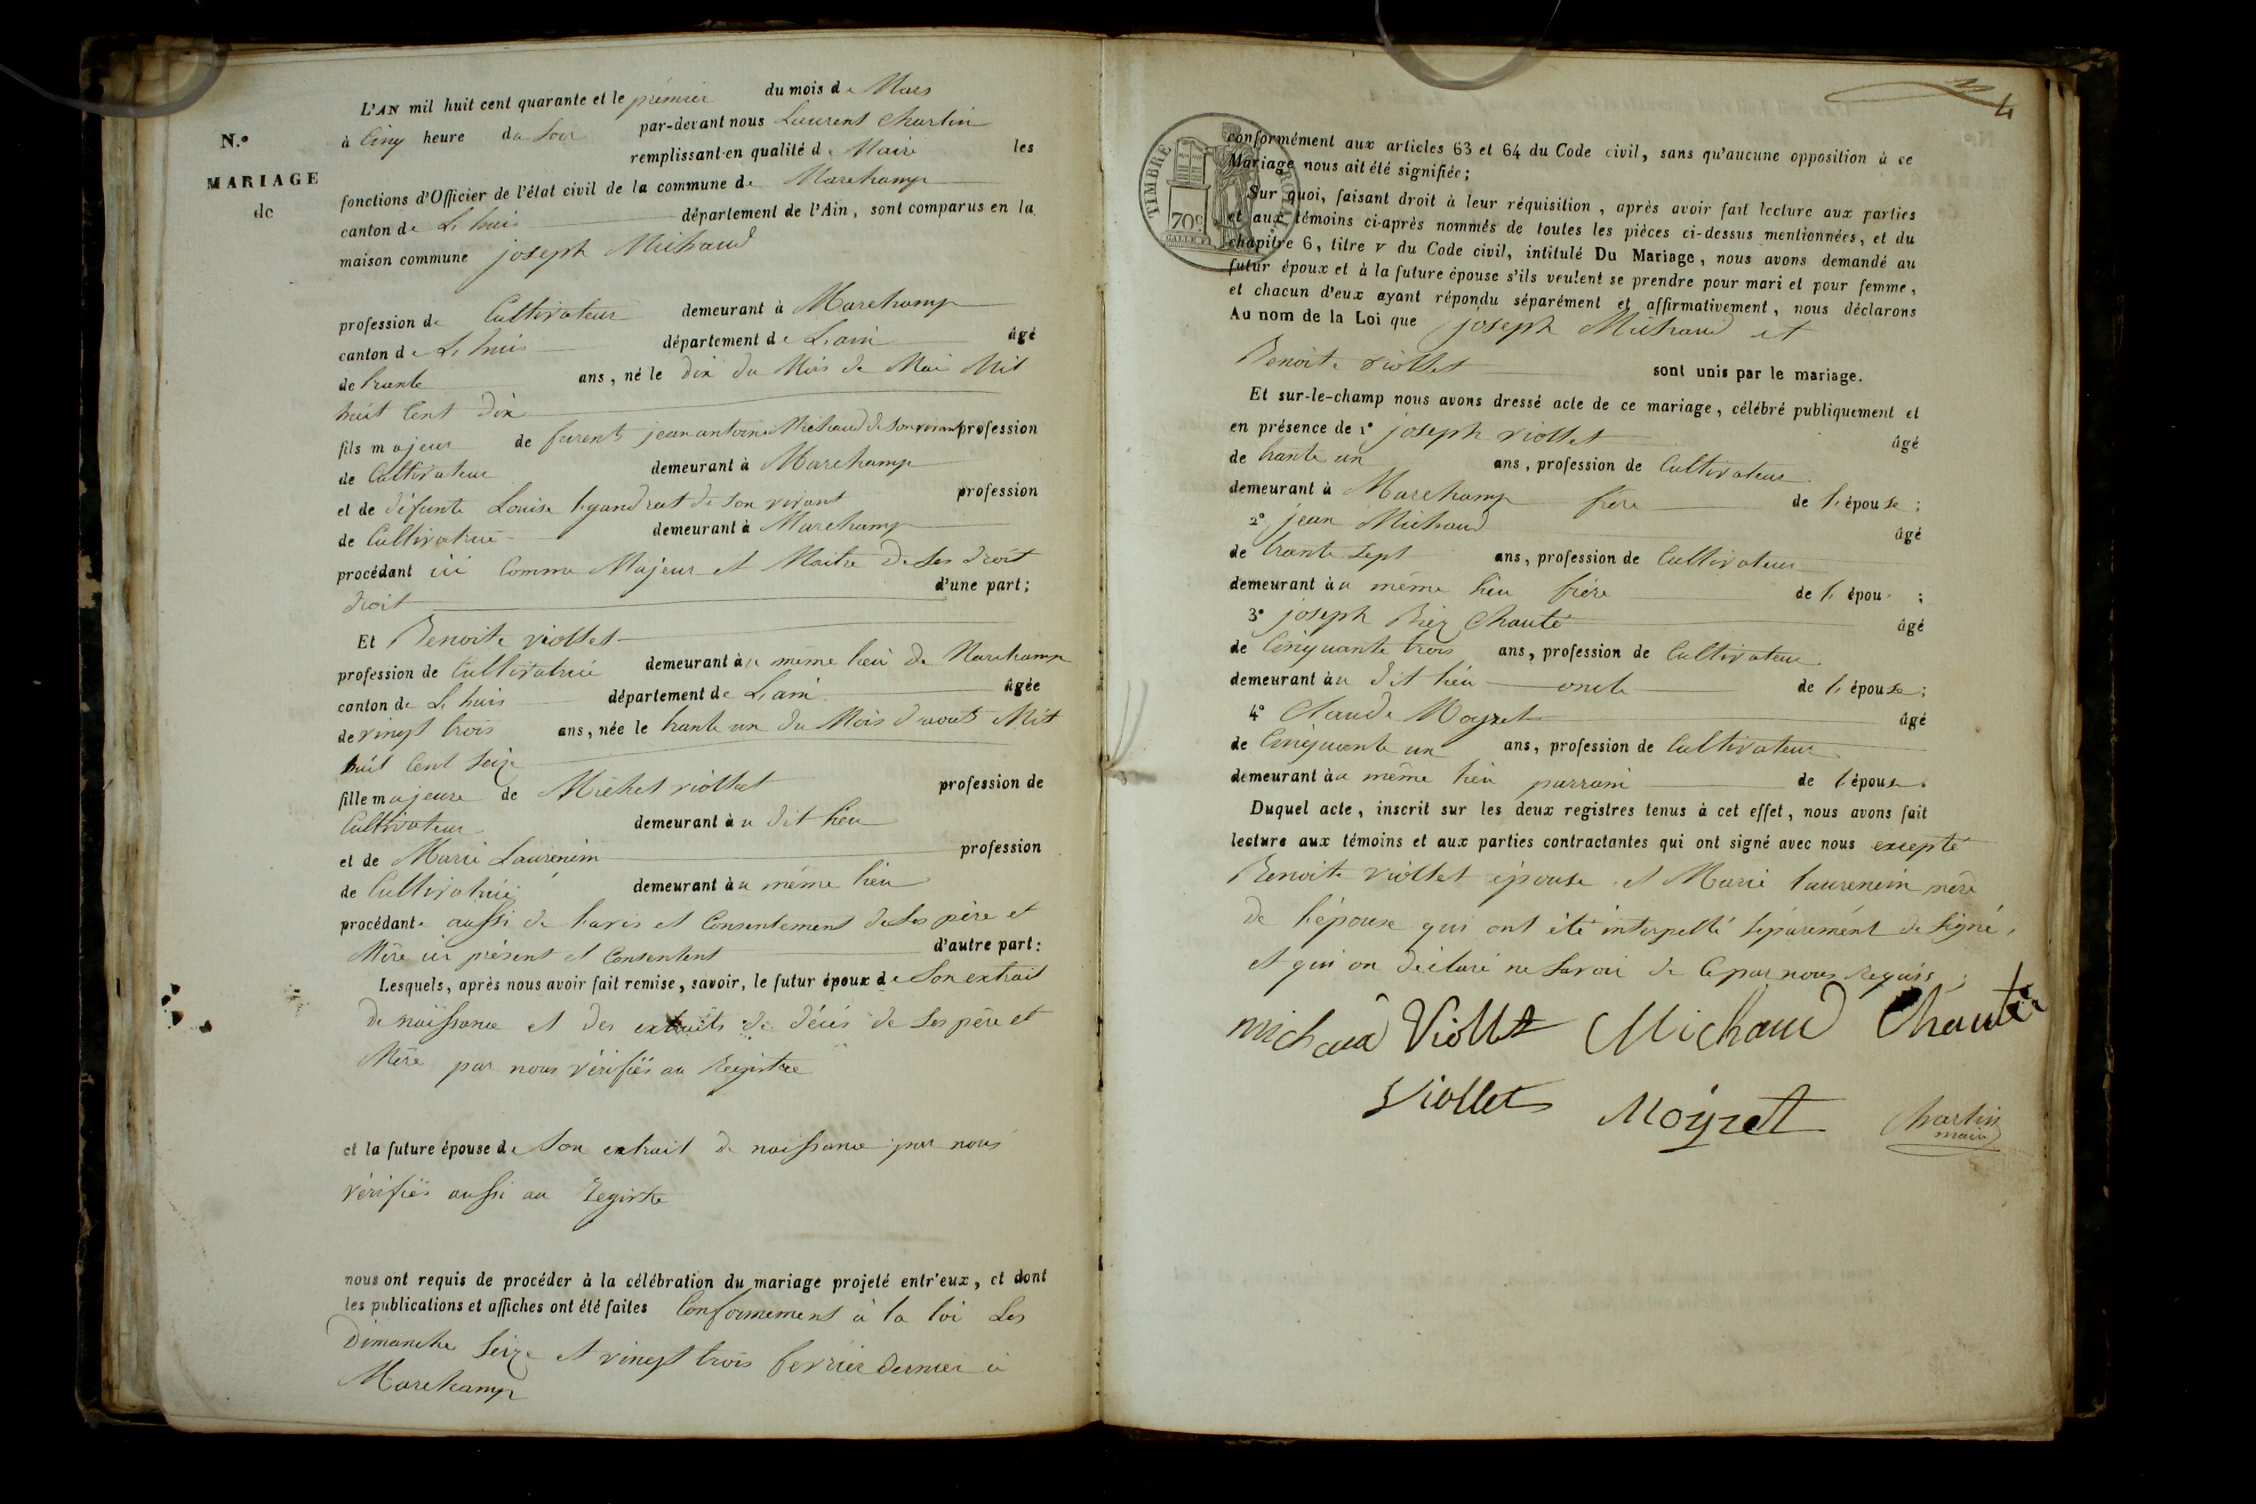 N.º
MARIAGE
de
L'AN mil huit cent quarante et le premier du mois de Mars
à Cinq heure du Soir par-devant nous Laurent Charlin
remplissant en qualité de Maire les
fonctions d'Officier de l'état civil de la commune de Marchamp
canton de L'huis département de l'Ain, sont comparus en la
maison commune joseph Michaud
profession de Cultivateur demeurant à Marchamp
canton de L'huis département de L'ain âgé
de trante ans, né le dix du Mois de Mai Mil
huit Cent dix
fils majeur de furent jean antoine Michaud de Son vivant profession
de Cultivateur demeurant à Marchamp
et de défunte Louise de Son vivant profession
de Cultivatrice demeurant à Marchamp
procédant ici Comme Majeur et Maitre de Ses droit
droit d'une part;
Et Benoite viollet
profession de Cultivatrice demeurant au même lieu de Marchamp
canton de L'huis département de L'ain âgée
de vingt trois ans, née le trante un du Mois d'aout Mil
huit Cent Seize
fille majeure de Michel viollet profession de
Cultivateur demeurant au dit lieu
et de Marie Laurencin profession
de Cultivatrice demeurant au même lieu
procédante aussi de l'avis et Consentement de Ses père et
Mère ici présent et Consentent d'autre part:
Lesquels, après nous avoir fait remise, savoir, le futur époux de Son extrait
de naissance et des extraits de décés de Ses père et
Mère par nous vérifiés au Registre
et la future épouse de Son extrait de naissance par nous
vérifiés aussi au Registre
nous ont requis de procéder à la célébration du mariage projeté entr'eux, et dont
les publications et affiches ont été faites Conformement à la loi Les
Dimanche Seize et vingt trois fevrier dernier à
Marchamp
4
TIMBRE ROYAL
70 c.
conformément aux articles 63 et 64 du Code civil, sans qu'aucune opposition à ce
Mariage nous ait été signifiée;
Sur quoi, faisant droit à leur réquisition, après avoir fait lecture aux parties
et aux témoins ci-après nommés de toutes les pièces ci-dessus mentionnées, et du
chapitre 6, titre v du Code civil, intitulé Du Mariage, nous avons demandé au
futur époux et à la future épouse s'ils veulent se prendre pour mari et pour femme,
et chacun d'eux ayant répondu séparément et affirmativement, nous déclarons
Au nom de la Loi que joseph Michaud et
Benoite viollet sont unis par le mariage.
Et sur-le-champ nous avons dressé acte de ce mariage, célébré publiquement et
en présence de 1º joseph viollet âgé
de trante un ans, profession de Cultivateur
demeurant à Marchamp frere de l'épouse;
2º jean Michaud âgé
de trante Sept ans, profession de Cultivateur
demeurant au même lieu frére de l'épou ;
3º joseph Chanté âgé
de Cinquante trois ans, profession de Cultivateur
demeurant au dit lieu oncle de l'épouse;
4º Claude Moyret âgé
de Cinquante un ans, profession de Cultivateur
demeurant au même lieu parrain de l'épouse.
Duquel acte, inscrit sur les deux registres tenus à cet effet, nous avons fait
lecture aux témoins et aux parties contractantes qui ont signé avec nous excepté
Benoite viollet épouse et Marie laurencin mère
de l'épouse qui ont été interpellé séparément de Signé,
et qui on déclaré ne Savoir de Ce par nous Requis;
michaud Viollet Michaud Chanté
Viollet Moyret Charlin
maire